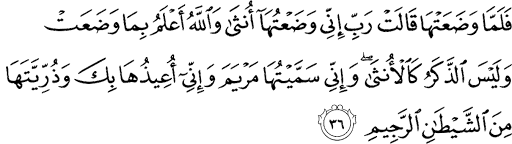 فَلَمَّا وَضَعَتْهَا قَالَتْ رَبِّ إِنِّي وَضَعْتُهَآ أُنثَىٰ وَٱللَّهُ أَعْلَمُ بِمَا وَضَعَتْ
وَلَيْسَ ٱلذَّكَرُ كَٱلْأُنثَىٰ ۖ وَإِنِّي سَمَّيْتُهَا مَرْيَمَ وَإِنِّيٓ أُعِيذُهَا بِكَ وَذُرِّيَّتَهَا
مِنَ ٱلشَّيْطَٰنِ ٱلرَّجِيمِ ٣٦